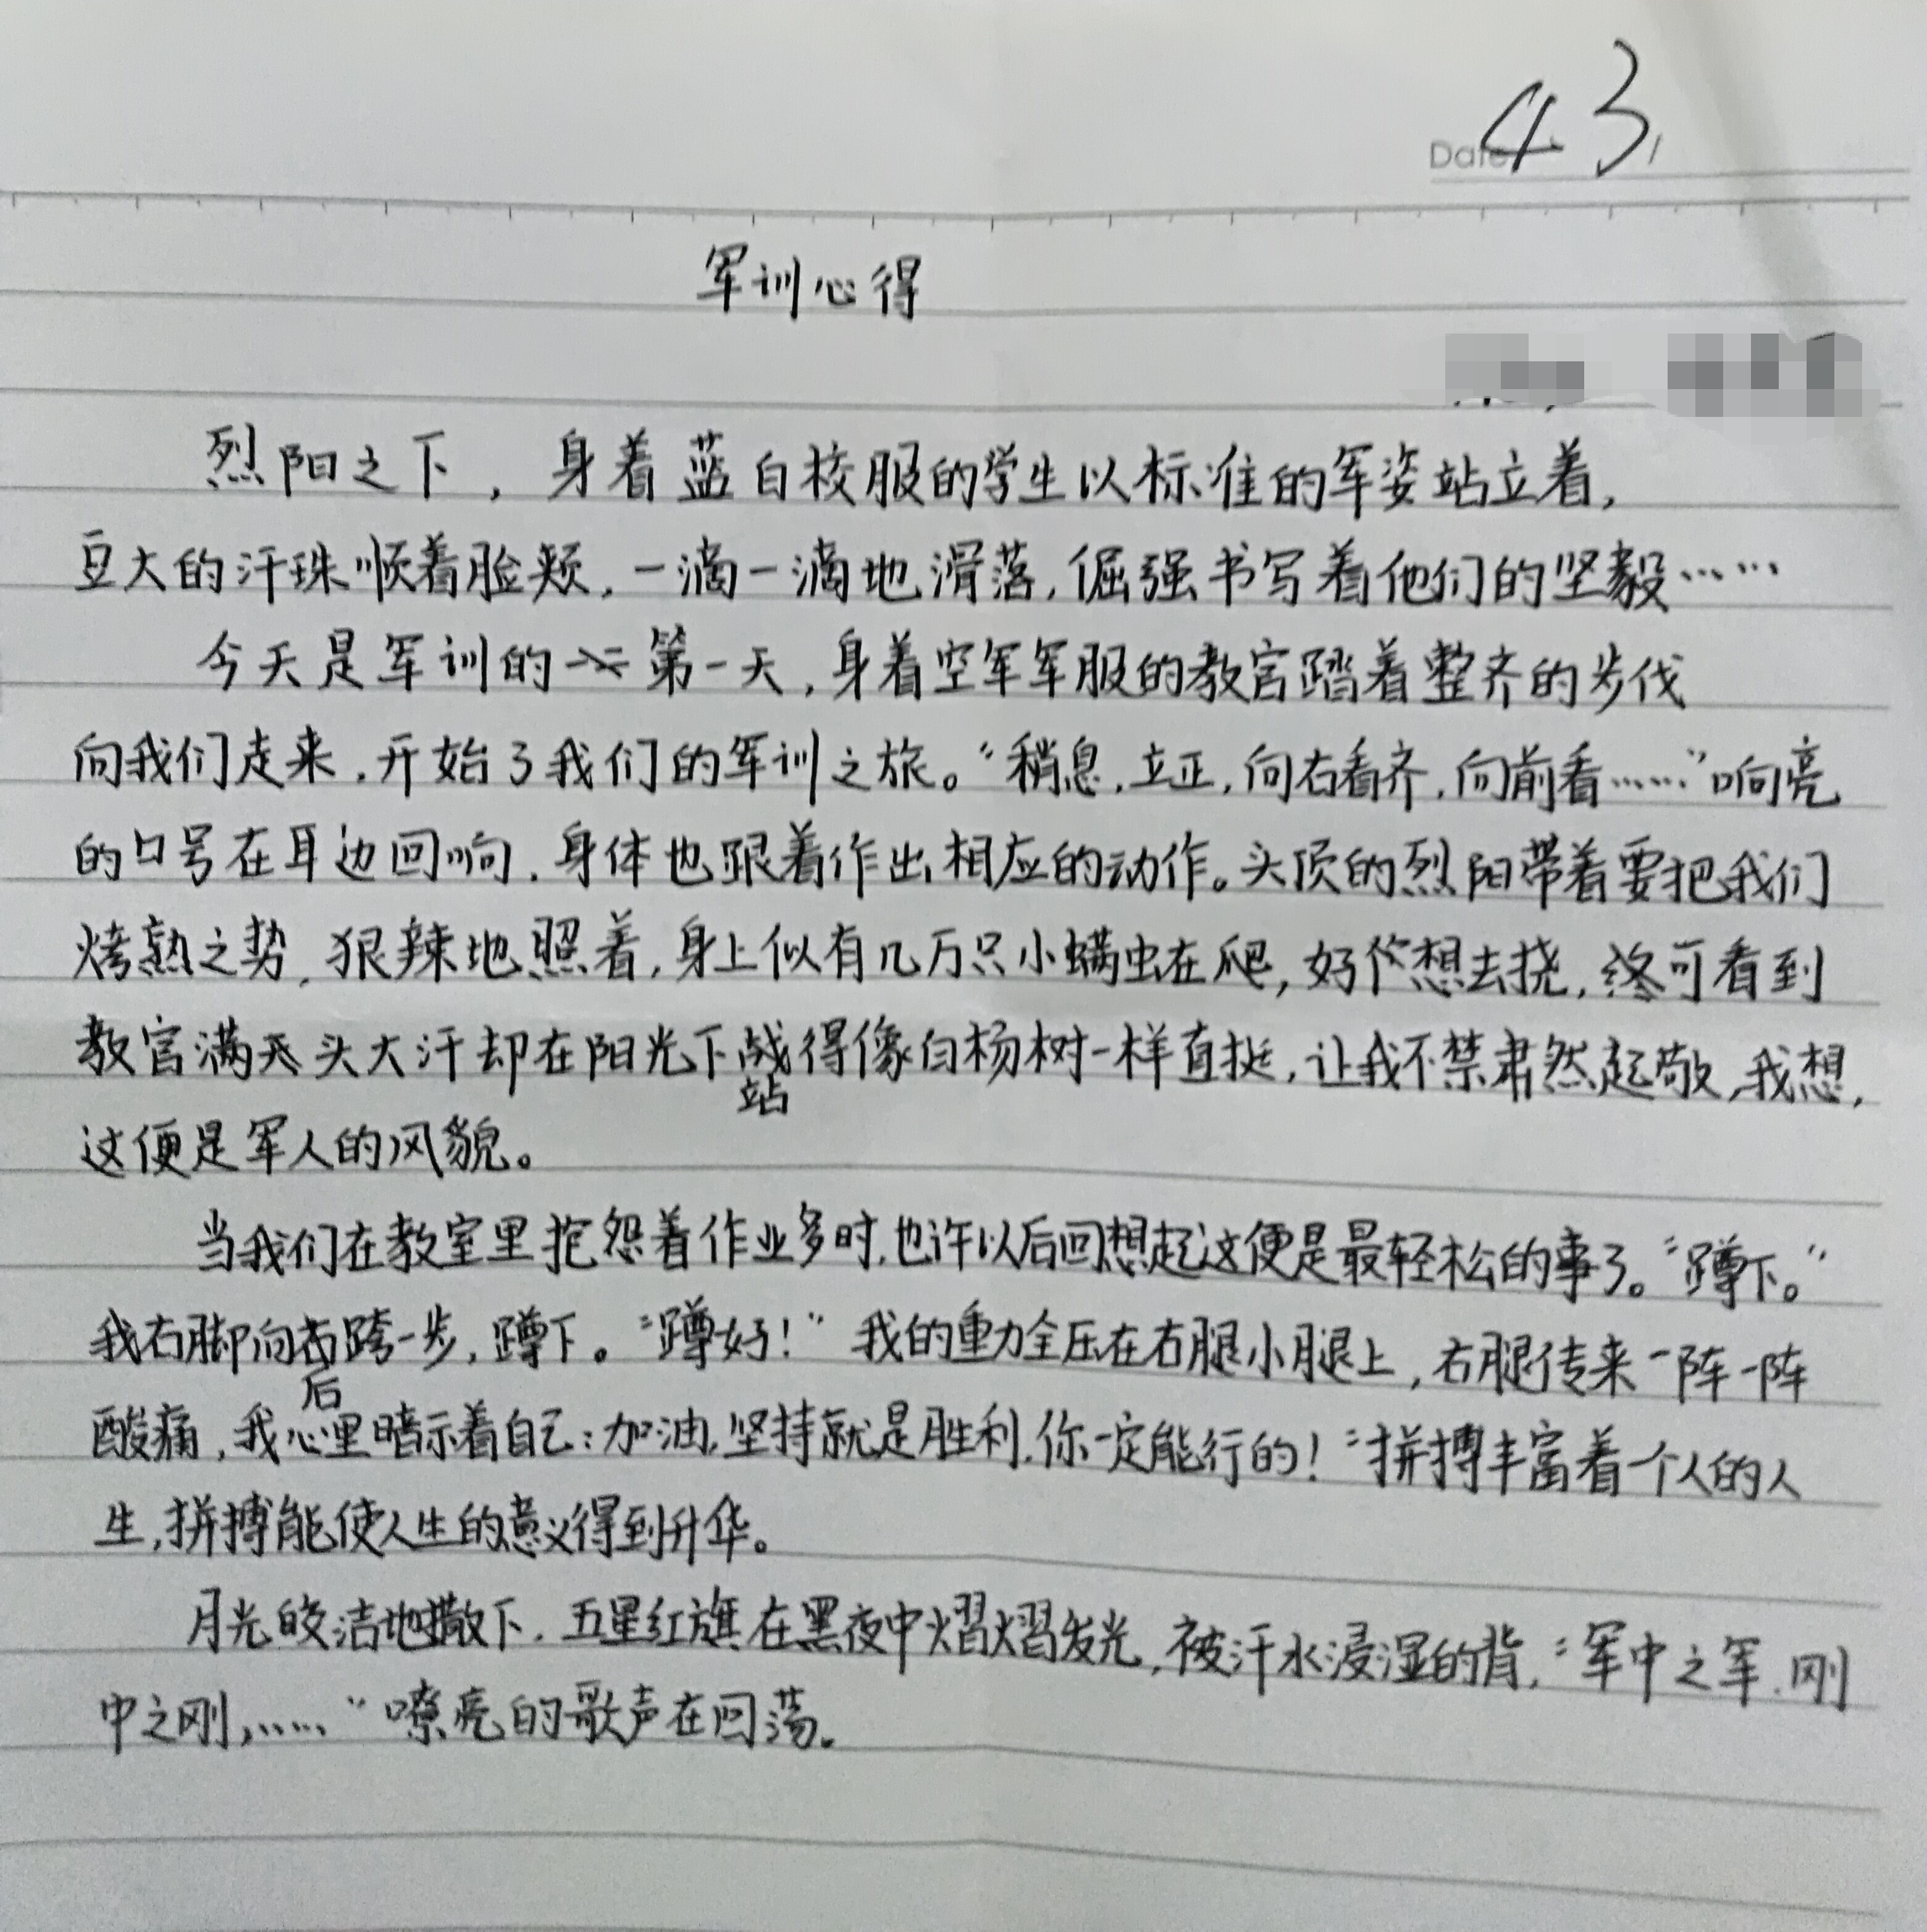 Date 43
军训心得
烈阳之下，身着蓝白校服的学生以标准的军姿站立着，
豆大的汗珠顺着脸颊，一滴一滴地滑落，倔强书写着他们的坚毅……
今天是军训的第一天，身着空军军服的教官踏着整齐的步伐
向我们走来，开始了我们的军训之旅。“稍息，立正，向右看齐，向前看……”响亮
的口号在耳边回响，身体也跟着作出相应的动作。头顶的烈阳带着要把我们
烤熟之势，狠辣地照着，身上似有几万只小蚂虫在爬，好想去挠，终可看到
教官满头大汗却在阳光下站得像白杨树一样直挺，让我不禁肃然起敬，我想，
这便是军人的风貌。
当我们在教室里抱怨着作业多时，也许以后回想起这便是最轻松的事了。“蹲下。”
我右脚向后跨一步，蹲下。“蹲好！”我的重力全压在右腿小腿上，右腿传来一阵一阵
酸痛，我心里暗示着自己：加油，坚持就是胜利，你一定能行的！“拼搏丰富着一个人的人
生，拼搏能使人生的意义得到升华。
月光皎洁地撒下，五星红旗在黑夜中熠熠发光，被汗水浸湿的背，“军中之军，刚
中之刚，……”嘹亮的歌声在回荡。